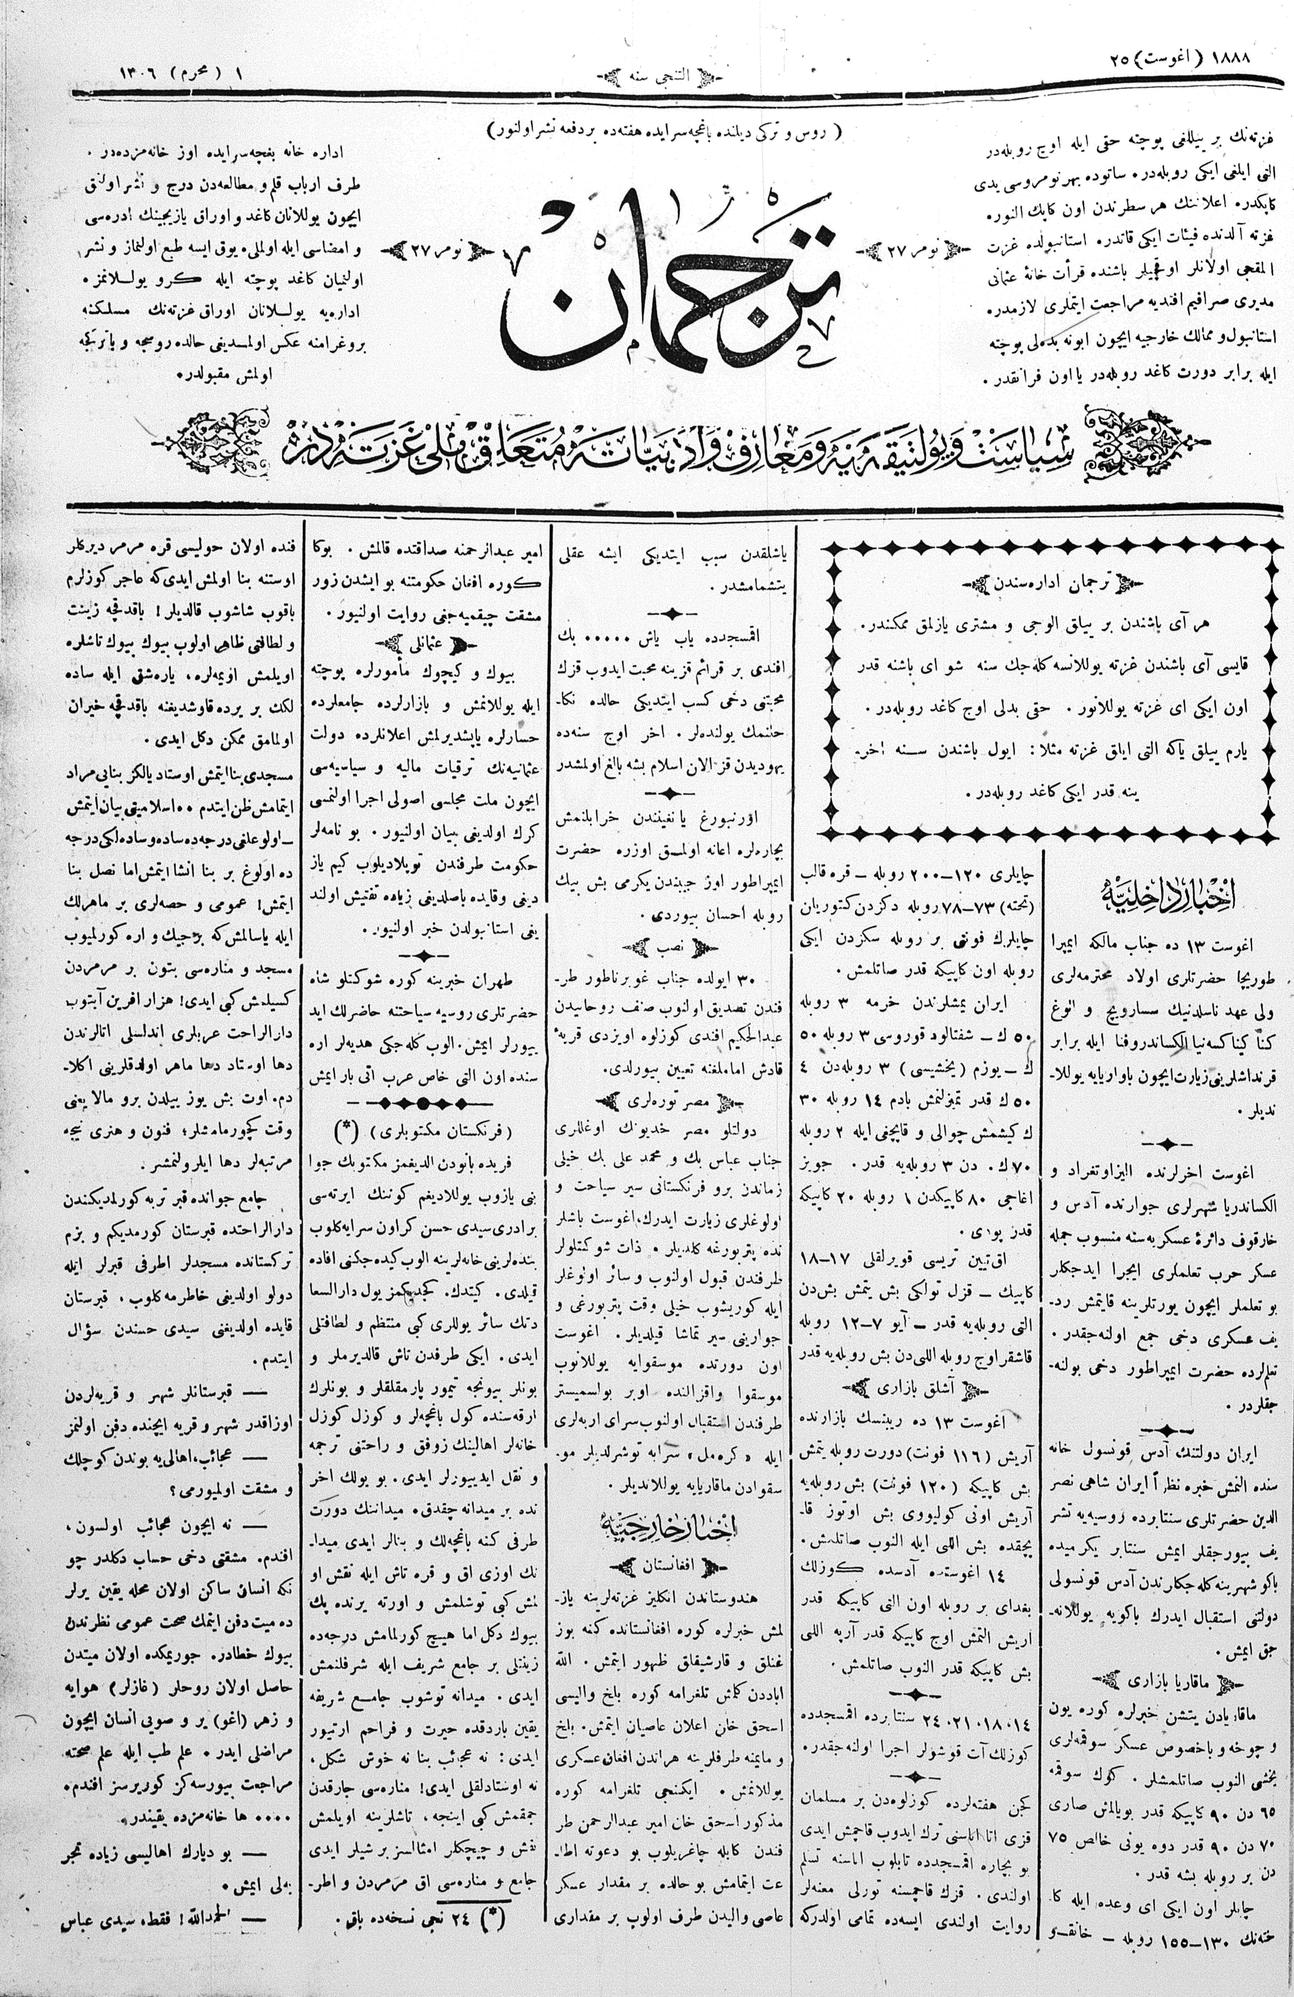 ١٨٨٨ (اغوست) ٢٥
التنجی سنه
١ (محرم) ١٣٠٦
(روس و ترکی دیلنده باغچه سرایده هفته ده بر دفعه نشر اولنور)
غزته نك بر ییللغی پوچته حقی ایله اوچ روبله در
التی ایلغی ایکی روبله در. ساتوده بهر نومروسی یدی
کاپکدر. اعلاننك هر سطرندن اون کاپك النور.
غزته آلدنده فیئات ایکی قاتدر. استانبولده غزت
المقجی اولانلر اوقچیلر باشنده قرأت خانۀ عثمانی
مدیری صرافیم افندیه مراجعت ایتملری لازمدر.
استانبول و ممالك خارجیه ایچون ابونه بدلی پوچته
ایله برابر دورت کاغد روبله در یا اون فرانقدر.
نومر ٢٧
ترجمان
نومر ٢٧
اداره خانه بغچه سرایده اوز خانه مزده در.
طرف ارباب قلم و مطالعه دن درج و نشر اولنق
ایچون یوللانان کاغد و اوراق یازیجینك ادره سی
و امضاسی ایله اولملی. یوق ایسه طبع اولنماز و نشر
اولنمیان کاغد پوچته ایله کرو یوللانمز.
اداریه یوللانان اوراق غزته نك مسلکنه
پروغرامنه عکس اولمسدیغی حالده روسجه و یا ترکجه
اولمش مقبولدر.
سیاست و پولتیقه یه و معارف و ادبیاته متعلق ملی غزته در
ترجمان اداره سندن
هر آی باشندن بر ییلق الوجی و مشتری یازلمق ممکندر.
قایسی آی باشندن غزته یوللانسه کله جك سنه شو ای باشنه قدر
اون ایکی ای غزته یوللانور. حقی بدلی اوچ کاغد روبله در.
یارم ییلق یاکه التی ایلق غزته مثلا: ایول باشندن سنه اخر-
ینه قدر ایکی کاغد روبله در.
اخبار داخلیه
اغوست ١٣ ده جناب مالکه ایمپرا
طوریچا حضرتلری اولاد محترمه لری
ولی عهد ناسلدنیك سسارویچ و الوغ
کنا کیناکسه نیا الکساندروفنا ایله برابر
قرنداشلرینی زیارت ایچون باواریایه یوللا-
ندیلر.
اغوست اخرلرنده الیزاوتغراد و
الکساندریا شهرلری جوارنده آدس و
خارقوف دائرۀ عسکریه سنه منسوب جمله
عسکر حرب تعلملری ایجرا ایدجکلر
بو تعلملر ایچون یورتلرینه قایتمش رد-
یف عسکری دخی جمع اولنه جقدر.
تعلم لرده حضرت ایمپراطور دخی بولنه-
جقلردر.
ایران دولتنك آدس قونسول خانه
سنده النمش خبره نظراً ایران شاهی نصر
الدین حضرتلری سنتابرده روسیه یه تشر
یف بیورجقلر ایمش سنتابر یکرمیده
باکو شهرینه کله جکلرندن آدس قونسولی
دولتی استقبال ایدرك باکویه یوللانه-
جق ایمش.
ماقاریا بازاری
ماقاریادن یتشن خبرلره کوره یون
و چوخه و باخصوص عسکر سوقمه لری
یخشی النوب صاتلمشلر. کوك سوقمه
٦٥ دن ٩٠ کاپیکه قدر بویالمش صاری
٧٠ دن ٩٠ قدر دوه یونی خالص ٧٥
دن بر روبله بشه قدر.
چایلر اون ایکی ای وعده ایله کا
خته نك ١٣٠—١٥٥ روبله — خانقو-و
چایلری ١٢٠—٢٠٠ روبله — قره قالب
(تخته) ٧٣—٧٨ روبله دکزدن کتوریان
چایلرك فونتی بر روبله سکزدن ایکی
روبله اون کاپیکه قدر صاتلمش.
ایران یمشلرندن خرمه ٣ روبله
٥٠ ك — شفتالود قوروسی ٣ روبله ٥٠
ك — یوزم (یخشیسی) ٣ روبله دن ٤
٥٠ ك قدر تمیزلنمش بادم ١٤ روبله ٣٠
ك کیشمش چوالی و قاپچغی ایله ٢ روبله
٧٠ ك. دن ٣ روبله یه قدر. جویز
اغاجی ٨٠ کاپیکدن ١ روبله ٢٠ کاپیکه
قدر پودی.
اق تیین تریسی قویرلقلی ١٧—١٨
کاپیك — قزل تولکی بش یتمش بش دن
التی روبله یه قدر — آیو ٧—١٢ روبله
قاشقر اوچ روبله اللی دن بش روبله یه قدر
آشلق بازاری
اغوست ١٣ ده ریبنسك بازارنده
آریش (١١٦ فونت) دورت روبله یتمش
بش کاپیکه (١٢٠ فونت) بش روبله یه
آریش اونی کولیووی بش اوتوز قا-
پیجقده بش اللی ایله النوب صاتلمش.
١٤ اغوستده آدسده کوزلك
بغدای بر روبله اون التی کاپیکه قدر
آریش التمش اوچ کاپیکه قدر آرپه اللی
بش کاپیکه قدر النوب صاتلمش.
١٤، ١٨، ٢١، ٢٤ سنتابرده اقمسجدده
کوزلك آت قوشولر اجرا اولنه جقدر.
کچن هفته لرده کوزلوه دن بر مسلمان
قزی اتا اناسنی ترك ایدوب قاچمش ایدی
بو بچاره اقمسجدده تابلوب اناسنه تسلم
اولندی. قزك قاچمسنه تورلی معنه لر
روایت اولندی ایسه ده تمامی اولدرکه
یاشلقدن سبب ایتدیکی ایشه عقلی
یتشمامشدر.
اقمسجدده یاب یاش ..... بك
افندی بر قرائم قزینه محبت ایدوب قزك
محبتنی دخی کسب ایتدیکی حالده نکا-
حلنمك یولنده لر. اخر اوچ سنه ده
یهودیدن قز الان اسلام بشه بالغ اولمشدر
اورنبورغ یانغینندن خرابلنمش
بچاره لره اعانه اولمق اوزره حضرت
ایمپراطور اوز جیبندن یکرمی بش بیك
روبله احسان بیوردی.
نصب
٣٠ ایولده جناب غوبرناطور طر-
فندن تصدیق اولنوب صنف روحانیدن
عبدالحکیم افندی کوزلوه اویزدی قریۀ
قادش امامملغنه تعیین بیورلدی.
مصر توره لری
دولتلو مصر خدیونك اوغللری
جناب عباس بك و محمد علی بك خیلی
زماندن برو فرنکستانی سیر سیاحت و
اولوغلری زیارت ایدرك، اغوست باشلر
نده پتربورغه کلدیلر. ذات شوکتلولر
طرفندن قبول اولنوب و سائر اولوغلر
ایله کوریشوب خیلی وقت پتربورغی و
جوارینی سیر تماشا قیلدیلر. اغوست
اون دورتده موسقوایه یوللانوب
موسقوا واقزالنده اوبر پولسمیستر
طرفندن استقبال اولنوب سرای اربه لری
ایله «کره مل» سرایه توشرلدیلر مو.
سقوادن ماقاریایه یوللاندیلر.
اخبار خارجیه
افغانستان
هندوستاندن انکلیز غزته لرینه یاز-
لمش خبرلره کوره افغانستانده کنه بوز
غنلق و قارشیقلق ظهور ایتمش. الله
اباددن کلمش تلغرامه کوره بلخ والیسی
اسحق خان اعلان عاصیان ایتمش. بلخ
و مایمنه طرفلرینه هراندن افغان عسکری
یوللانمش. ایکنجی تلغرامه کوره
مذکور اسحق خان امیر عبدالرحمن طر
فندن کابله چاغریلوب بو دعوته اطا-
عت ایتمامش بو حالده بر مقدار عسکر
عاصی والیدن طرف اولوب بر مقداری
امیر عبدالرحمنه صداقتده قالمش. بوکا
کوره افغان حکومتنه بو ایشدن زور
مشقت چیقمیه جغی روایت اولنیور.
عثمانلی
بیوك و کیچوك مأمورلره پوچته
ایله یوللانمش و بازارلرده جامعلرده
حسارلره یاپشدیرلمش اعلانلرده دولت
عثمانیه نك ترقیات مالیه و سیاسیه سی
ایچون ملت مجلسی اصولی اجرا اولنمسی
کرك اولدیغی بیان اولنیور. بو نامه لر
حکومت طرفندن توپلادیلوب کیم یاز
دیغی و قایده باصلدیغی زیاده تفتیش اولند
یغی استانبولدن خبر اولنیور.
طهران خبرینه کوره شوکتلو شاه
حضرتلری روسیه سیاحتنه حاضرلك اید
بیورلر ایمش. الوب کله جکی هدیه لر اره
سنده اون التی خاص عرب اتی بار ایمش
(فرنکستان مکتوبلری) (*)
فریده بانودن الدیغمز مکتوبك جوا
بنی یازوب یوللادیغم کوننك ایرته سی
برادری سیدی حسن کراون سرایه کلوب
بنده لرینی خانه لرینه الوب کیده جکنی افاده
قیلدی. کیتدك. کجدیکمز یول دار السعا
دتك سائر یوللری کبی منتظم و لطافتلی
ایدی. ایکی طرفدن تاش قالدیرملر و
بونلر بیونجه تیمور پارمقلقلر و بونلرك
ارقه سنده کول باغچه لر و کوزل کوزل
خانه لر اهالینك زوقق و راحتنی ترجمه
و نقل ایدییورلر ایدی. بو یولك اخر
نده بر میدانه چقدق. میداننك دورت
طرفی کنه باغچه لك و بنالر ایدی میدا-
نك اوزی اق و قره تاش ایله نقش او
لمش کبی توشلمش و اورته یرنده پك
بیوك دکل اما هیچ کورلمامش درجه ده
زینتلی بر جامع شریف ایله شرفلنمش
ایدی. میدانه توشوب جامع شریفه
یقین باردقده حیرت و فراحم ارتیور
ایدی: نه عجائب بنا نه خوش شکل،
نه اوستادلقلی ایدی! مناره سی جارقدن
جمقمش کبی اینجه، تاشلرینه اویلمش
نقش و چیچکلر امثالسز بر شیلر ایدی
جامع و مناره سی اق مرمردن و اطر-
(*) ٢٤ نجی نسخه ده باق.
فنده اولان حولیسی قره مرمر دیرکلر
اوستنه بنا اولمش ایدی که عاجر کوزلرم
باقوب شاشوب قالدیلر! باقدقچه زینت
و لطافتی ظاهر اولوب بیوك بیوك تاشلره
اویلمش اویمه لره، یاره شق ایله ساده
لکك بر یرده قاوشدیغنه باقدقچه خیران
اولمامق ممکن دکل ایدی.
مسجدی بنا ایتمش اوستاد یالکز بنایی مراد
ایتمامش ظن ایتدم .. اسلامیتی بیان ایتمش
— اولوغلغی درجه ده ساده و ساده لکی درجه
ده اولوغ بر بنا انشا ایتمش اما نصل بنا
ایتمش! عمومی و حصه لری بر ماهرلك
ایله یاسالمش که برجیك و اره کورلمیوب
مسجد و مناره سی بتون بر مرمردن
کسیلمش کبی ایدی! هزار افرین آیتوب
دار الراحت عربلری اندلسلی اتالرندن
دها اوستاد دها ماهر اولدقلرینی اکلا-
دم. اوت بش یوز ییلدن برو مالا یغنی
وقت کچورمامشلر؛ فنون و هنری نیجه
مرتبه لر دها ایلرولنمشر.
جامع جوانده قبر تربه کورلمدیکندن
دار الراحتده قبرستان کورمدیکم و بزم
ترکستانده مسجدلر اطرفی قبرلر ایله
دولو اولدیغی خاطرمه کلوب، قبرستان
قایده اولدیغنی سیدی حسندن سؤال
ایتدم.
— قبرستانلر شهر و قریه لردن
اوزاقدر شهر و قریه ایچنده دفن اولنمز
— عجائب، اهالی یه بوندن کوچلك
و مشقت اولمیورمی؟
— نه ایچون عجائب اولسون،
افندم. مشقتی دخی حساب دکلدر چو
نکه انسان ساکن اولان محله یقین یرلر
ده میت دفن ایتمك صحت عمومی نظرندن
بیوك خطادر. جوریمکده اولان میتدن
حاصل اولان روحلر (غازلر) هوایه
و زهر (اغو) یر و صویی انسان ایچون
مراضلی ایدر. علم طب ایله علم صحته
مراجعت بیورسه کز کوریرسز افندم.
.... ها خانه مزده یقیندر.
— بو دیارك اهالیسی زیاده تجر
به لی ایمش.
— الحمدالله! فقط، سیدی عباس